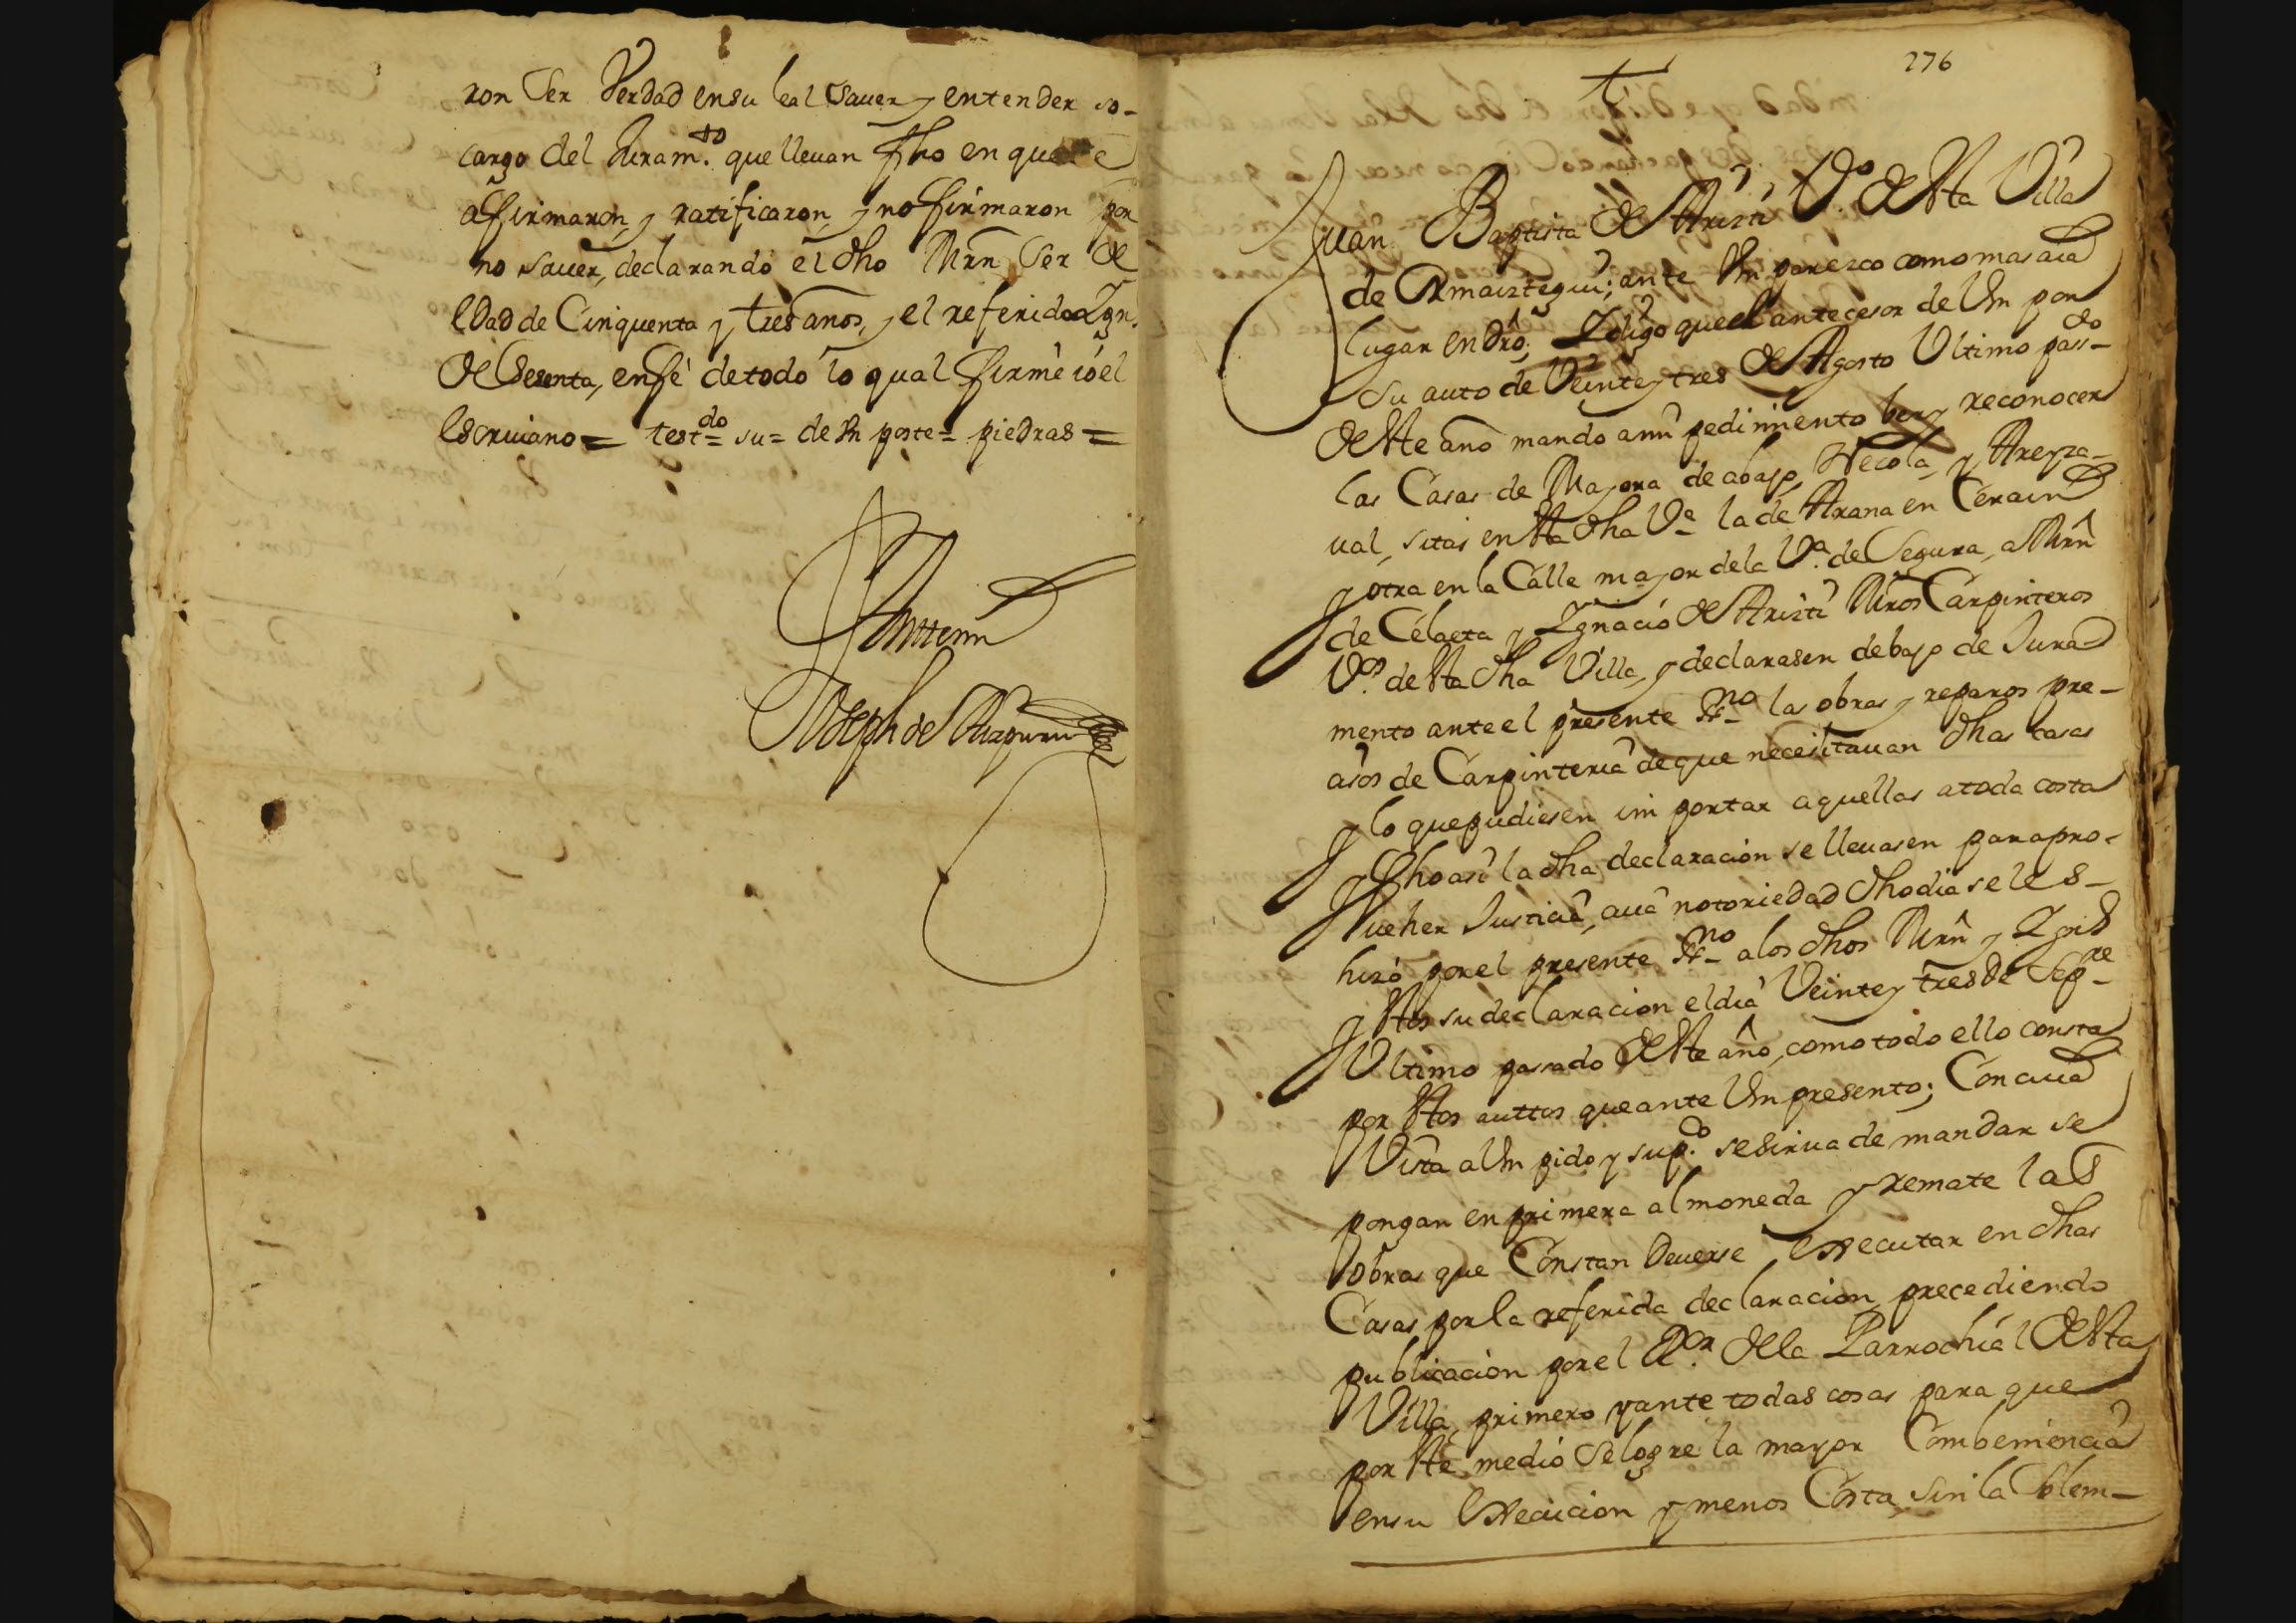 ron ser Verdad en su leal saver y entender so-
cargo del Juram.to que llevan fho en que se
afirmaron, y ratificaron, y no firmaron por
no saver, declarando el dho Mrn ser de
edad de Cinquenta y tres años, y el referido Ign.
de sesenta, en fè de todo lo qual firmè io el
escrivano = test.do = su = de un poste = piedras =
Ante mi
Joseph de Aizpuru
276
Juan Baptista de Aristi V.o de esta Villa
de Ormaiztegui; ante Vm parezco como mas aia
lugar en dro; I digo que el antecesor de Vm por
su auto de Veinte y tres de Agosto Ultimo pass.do
de este año mando a mi pedimiento ber y reconocer
las Casas de Mayora de abajo, y Areyza-
val, sitas en esta dha V.a la de Arana en Cerain
y otra en la Calle mayor de la V.a de Segura, a Mrn
de Celaeta y Ignacio de Aristi Mros Carpinteros
V.os de esta dha Villa, y declarasen debajo de Jura
mento ante el presente ess.no las obras y reparos pre-
cisos de Carpinteria de que necesitavan dhas casas
y lo que pudiesen importar aquellas a toda costa
y fho asi la dha declaracion se llevasen para pro-
veher Justicia, cuia notoriedad dho dia se les
hizo por el presente ess.no a los dhos Mrn y Ign.o
y estos su declaracion el dia Veinte y tres de Sep.re
Ultimo pasado de este año, como todo ello consta
por estos auttos que ante Vm presento; Con cuia
Vista a Vm pido y sup.co se sirva de mandar se
pongan en primera almoneda y remate las
obras que Constan deverse executar en dhas
Casas por la referida declaracion precediendo
publicacion por el R.or de la Parrochial de esta
Villa, primero y ante todas cosas para que
por este medio se logre la mayor Combeniencia
en su execucion y menos Costa sin la Solem-